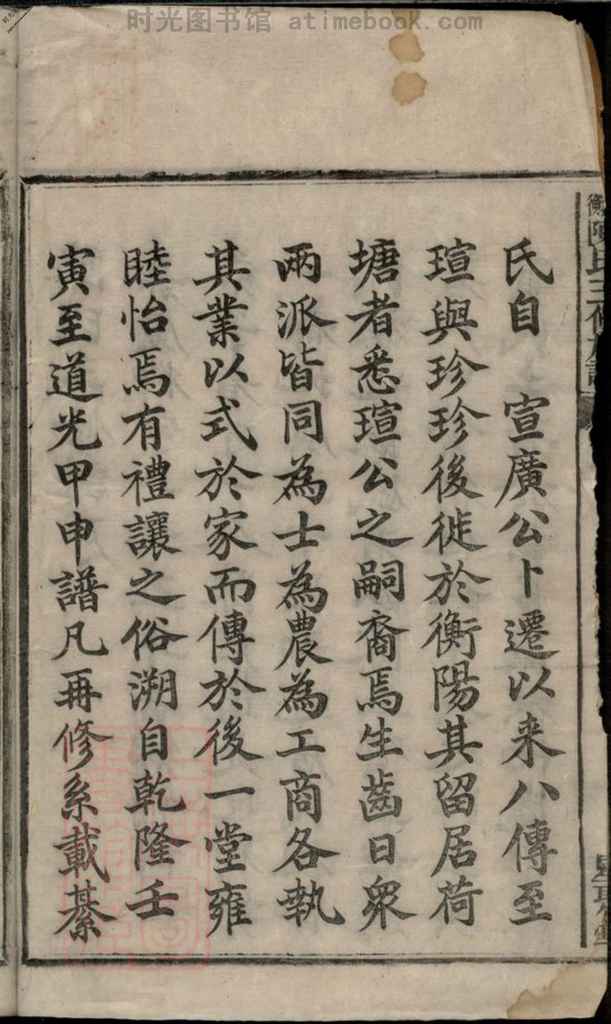 时光图书馆 atimebook.com
氏自　宣廣公卜遷以来八傳至
瑄與珍珍後徙於衡陽其留居荷
塘者悉瑄公之嗣裔焉生齒日衆
兩派皆同為士為農為工商各執
其業以式於家而傳於後一堂雍
睦怡焉有禮讓之俗溯自乾隆壬
寅至道光甲申譜凡再修系載綦